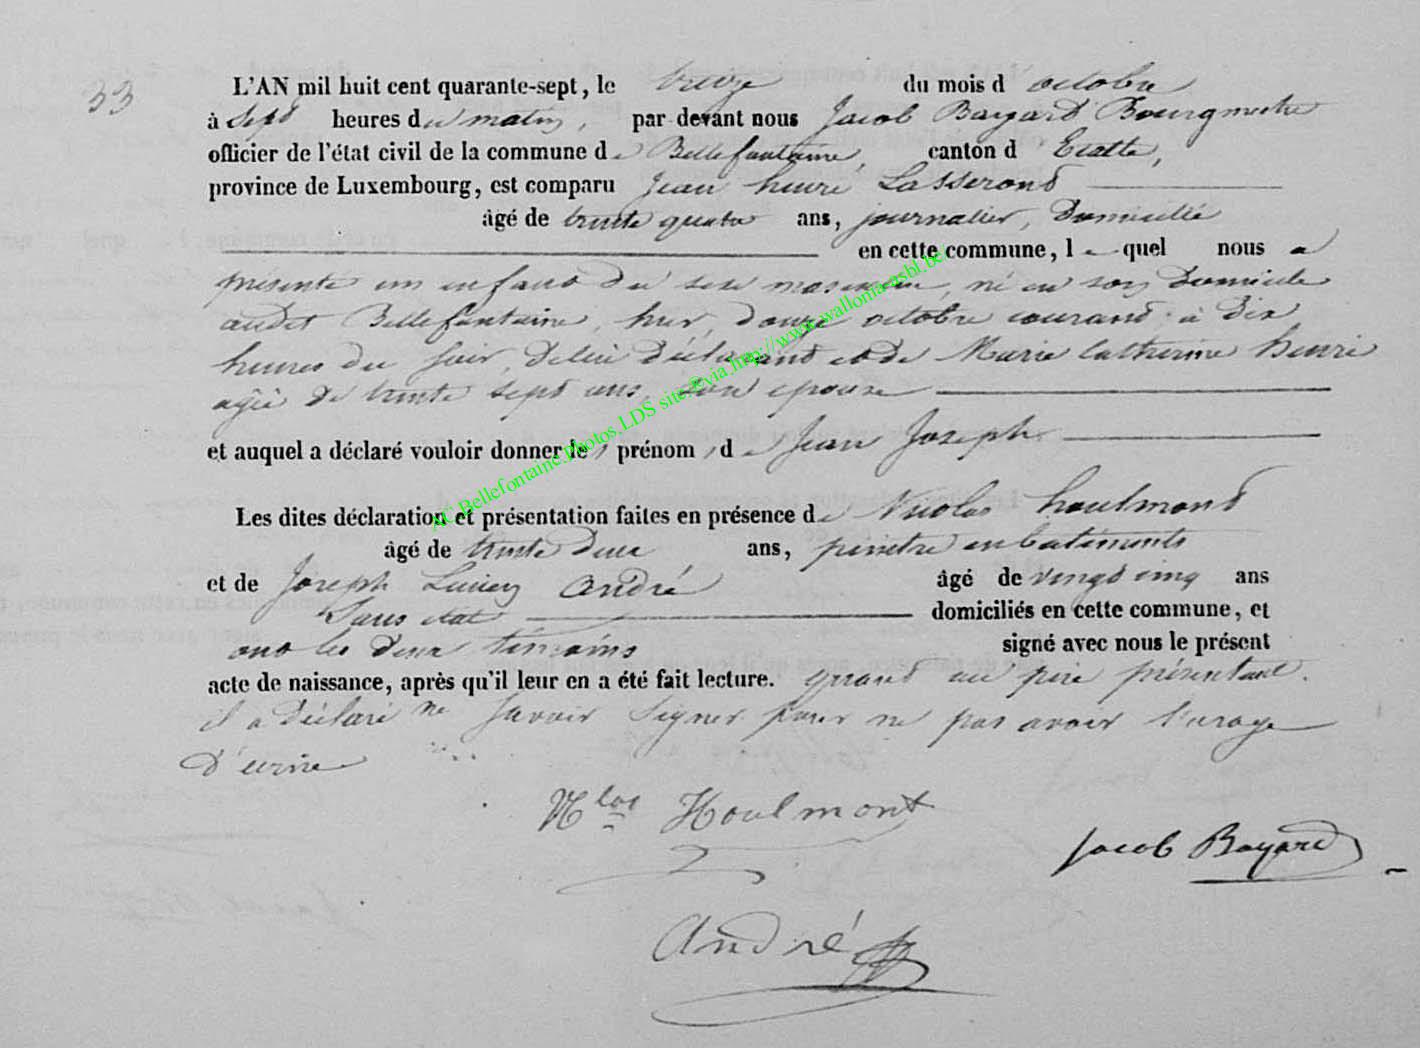 33
L'AN mil huit cent quarante-sept, le treize du mois d'octobre
à Sept heures du matin, par devant nous Jacob Bayard Bourgmestre
officier de l'état civil de la commune de Bellefontaine, canton d'Etalle,
province de Luxembourg, est comparu Jean henri Lasserond
âgé de trente quatre ans, journalier, Domicilié
en cette commune, lequel nous a
présenté un enfant du sexe masculin, né en son Domicile
audit Bellefontaine, hier, Douze octobre courant à Dix
heures du soir, De lui Déclarant et de Marie Catherine henri
agée De trente sept ans, son epouse
et auquel a déclaré vouloir donner les prénoms de Jean Joseph.
Les dites déclaration et présentation faites en présence de Nicolas houlmond
âgé de trente Deux ans, peintre en batiments
et de Joseph Lucien André âgé de vingt cinq ans
Sans etat domiciliés en cette commune, et
ont les deux témoins signé avec nous le présent
acte de naissance, après qu'il leur en a été fait lecture. quant au pere présentant.
il a Déclaré ne savoir signer pour ne pas avoir l'usage
D'ecrire
Nlas Houlmont
Jacob Bayard
André
AC Bellefontaine.Photos.LDS site.©via.http://www.wallonia-asbl.be/